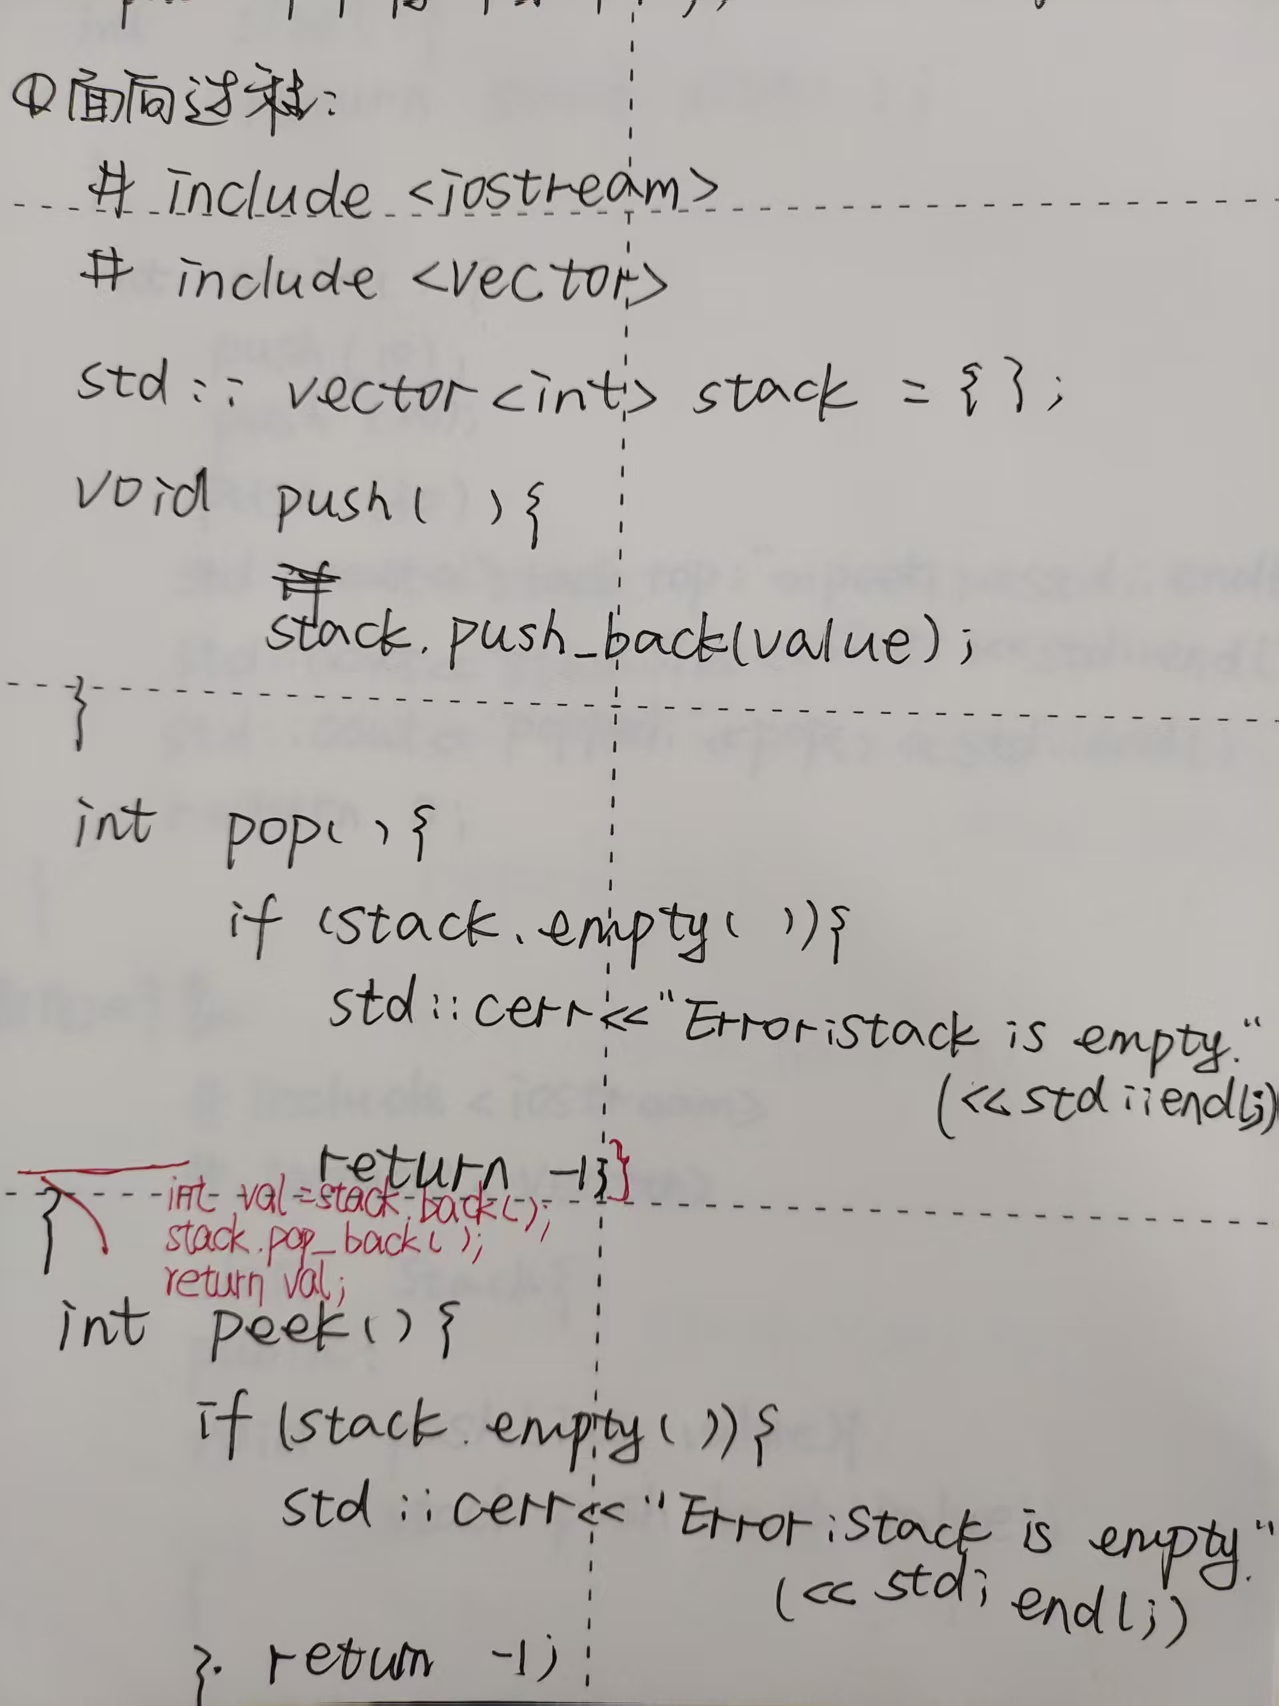 ①面向过程:
# include <iostream>
# include <vector>
std :: vector<int> stack = {};
void push( ){
stack.push_back(value);
}
int pop( ){
if (stack.empty( )){
std::cerr<<"Error:stack is empty."
(<<std::endl;)
return -1;}
int val=stack.back();
stack.pop_back( );
return val;
}
int peek( ){
if (stack.empty( )){
std::cerr<<"Error:Stack is empty."
(<< std: endl;)
}. return -1;